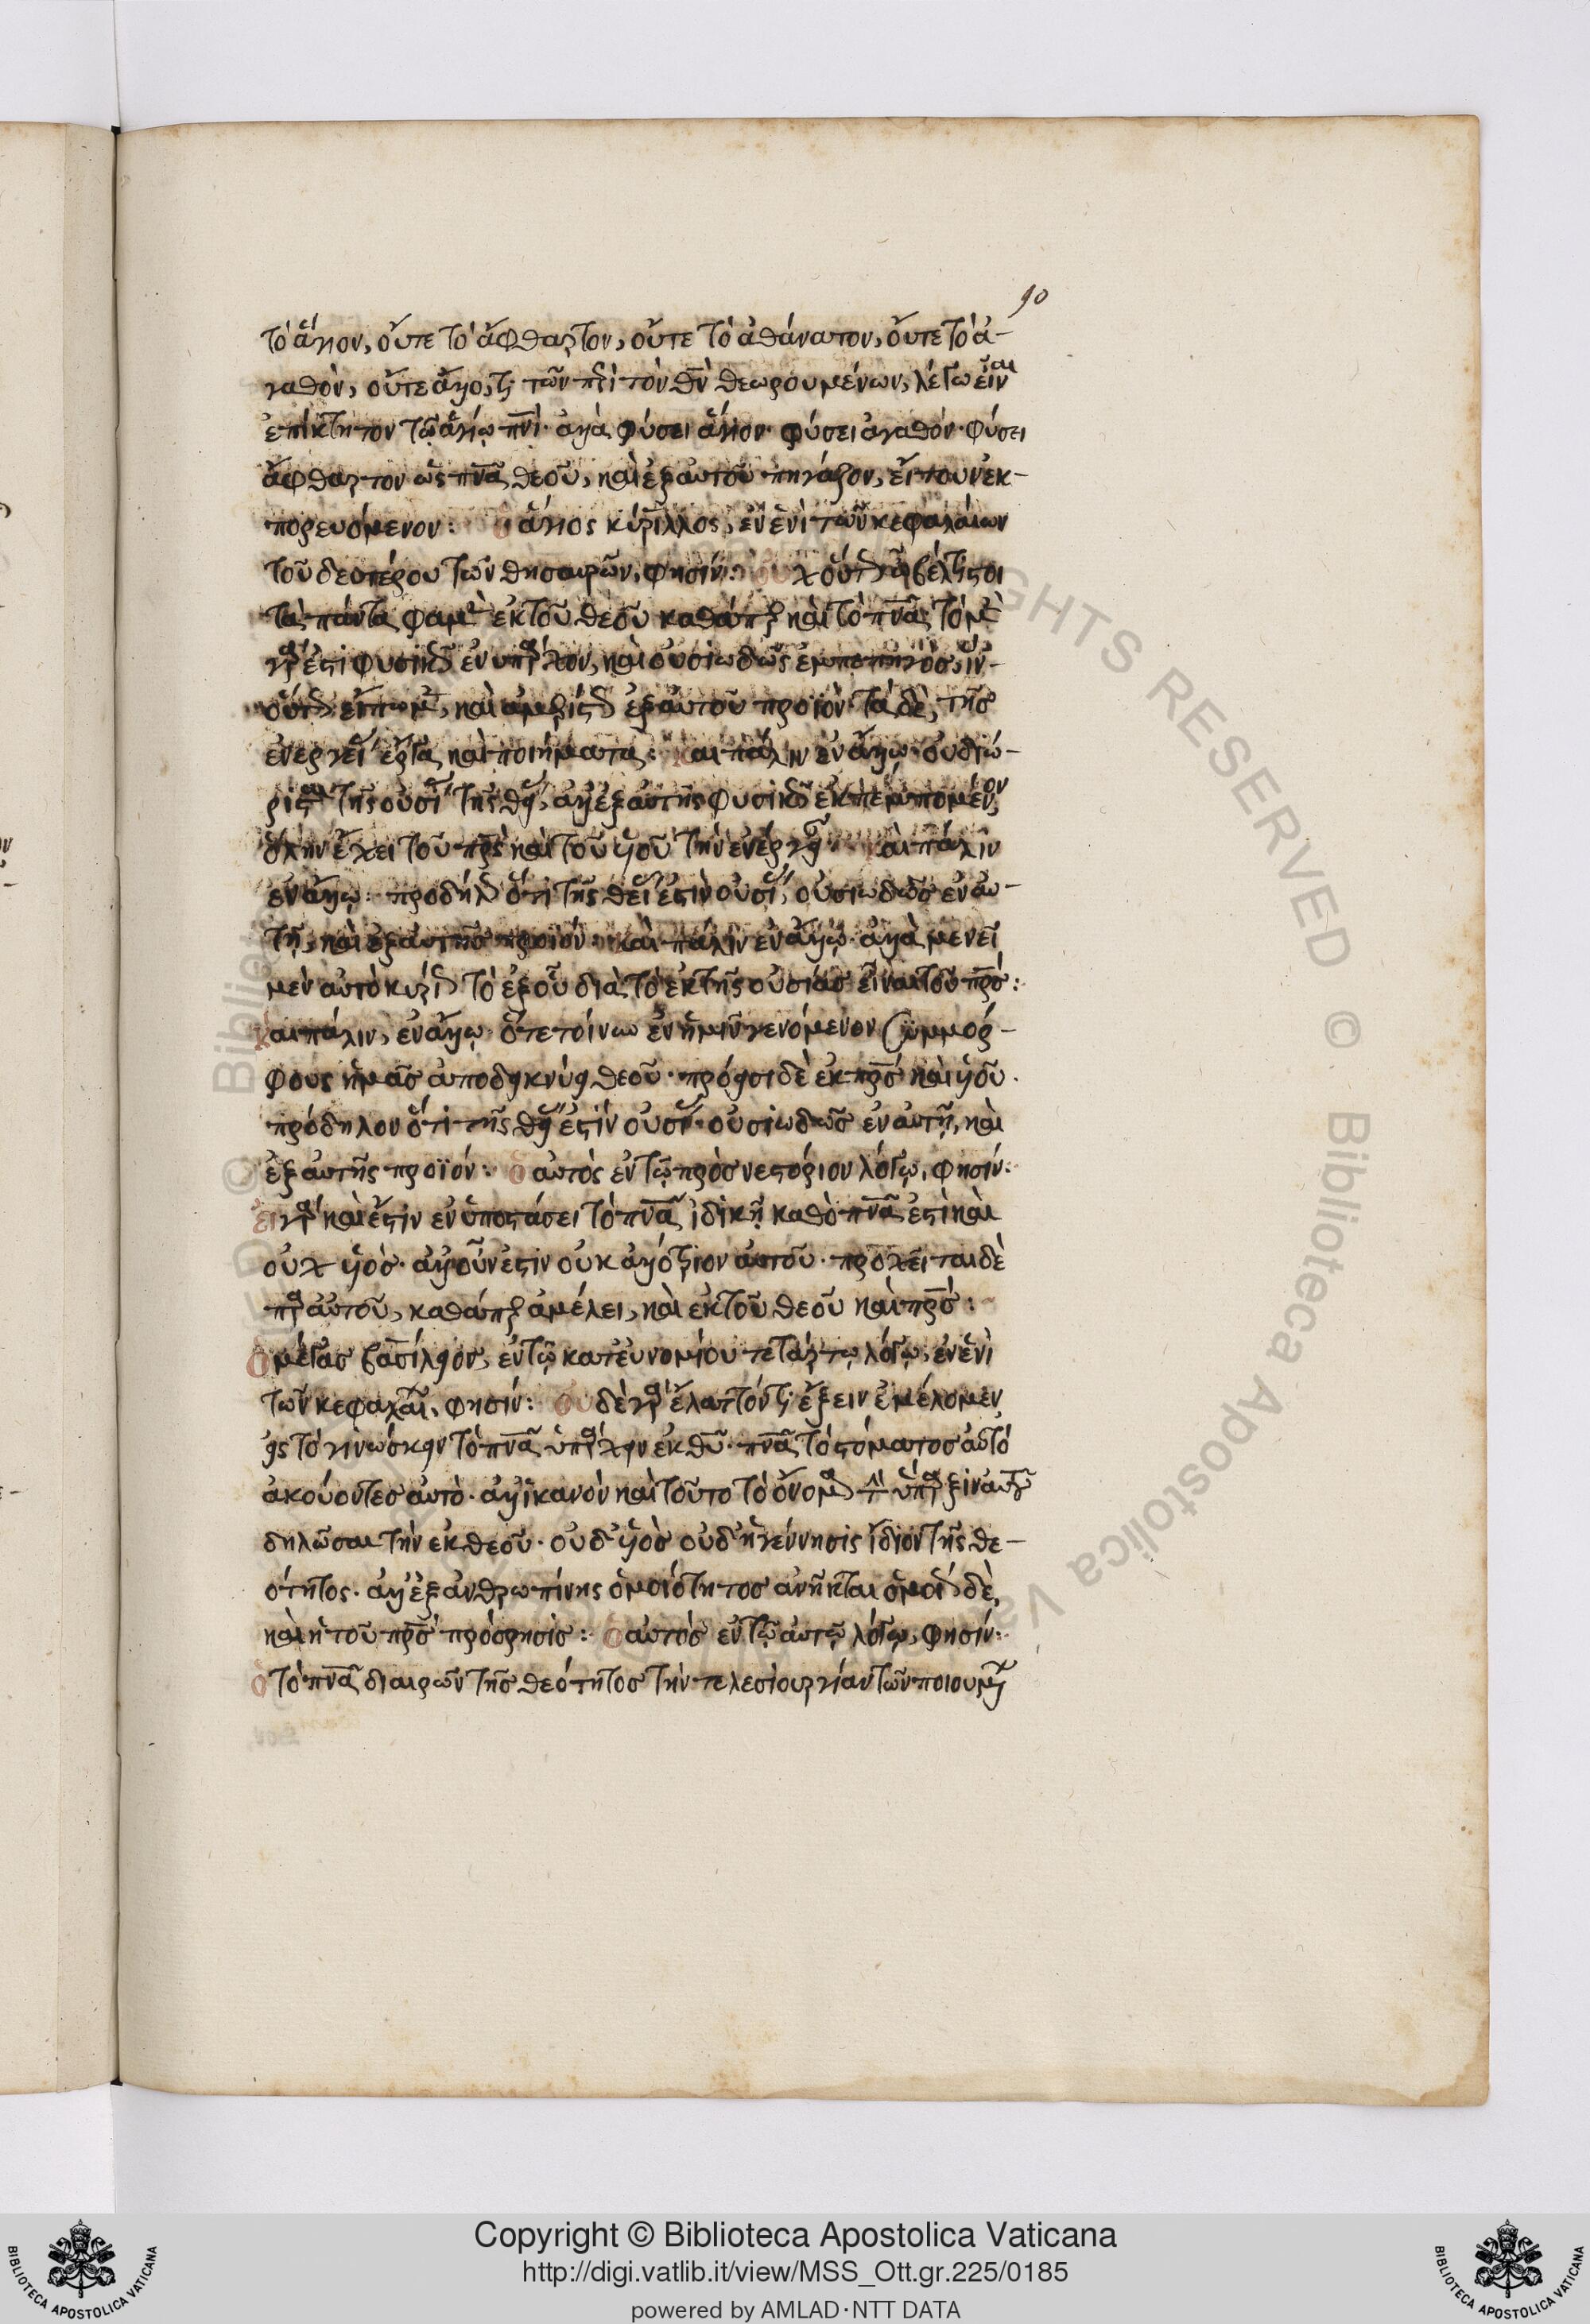 90
τὸ ἅγιον, οὔτε τὸ ἄφθαρτον, οὔτε τὸ ἀθάνατον, οὔτε τὸ ἀ-
γαθὸν, οὔτε ἄλλο, τι τῶν περὶ τὸν θν̄ θεωρουμένων, λέγω εἶναι
ἐπίκτητον τῶ ἁγίω πνῑ· ἀλλὰ φύσει ἅγιον· φύσει ἀγαθόν· φύσει
ἄφθαρτον ὡς πνᾱ θεοῦ, καὶ ἐξ αὐτοῦ πηγάζον, εἴτουν ἐκ-
πορευόμενον: ὁ ἅγιος κύριλλος, ἐν ἑνὶ τῶν κεφαλαίων
τοῦ δευτέρου τῶν θησαυρῶν, φησίν: οὐχ οὕτως ὦ βέλτιστοι
τὰ πάντα φαμὲν ἐκ τοῦ θεοῦ καθάπερ καὶ τὸ πνᾱ· τὸ μὲν
γάρ ἐστι φυσικῶς ἐνυπάρχον, καὶ οὐσιωδῶς ἐμπεπηγὸς, ἵν-
οὕτως εἴπωμεν, καὶ ἀμερίστως ἐξ αὐτοῦ προϊόν· τὰ δὲ, τῆς
ἐνεργείας ἔργα, καὶ ποιήματα: καὶ πάλιν ἐν ἄλλω·
τῆς οὐσίας τῆς θείας, ἀλλ' ἐξ αὐτῆς φυσικῶς ἐκπεμπόμενον,
ὅλην ἔχει τοῦ πρ̄ς καὶ τοῦ υἱοῦ τὴν ἐνέργειαν: καὶ πάλιν
ἐν ἄλλω: προδήλως ὅτι τῆς θείας ἐστὶν οὐσίας, οὐσιωδῶς ἐν αὐ-
τῆ, καὶ ἐξ αὐτῆς προϊόν: καὶ πάλιν ἐν ἄλλω· ἀλλὰ μενεῖ
μὲν αὐτὸ κυρίως τὸ ἐξ οὗ διὰ τὸ ἐκ τῆς οὐσίας εἶναι τοῦ πρ̄ς:
καὶ πάλιν, ἐν ἄλλω· ὅτε τοίνυν ἐν ἡμῖν γενόμενον συμμόρ-
φους ἡμᾶς ἀποδεικνύει θεοῦ· πρόεισι δὲ ἐκ πρ̄ς καὶ υἱοῦ·
πρόδηλον ὅτι τῆς θείας ἐστὶν οὐσίας· οὐσιωδῶς ἐν αὐτῆ, καὶ
ἐξ αὐτῆς προϊόν: ὁ αὐτὸς ἐν τῶ πρὸς νεστόριον λόγω, φησίν:
εἰ γὰρ καὶ ἔστιν ἐν ὑποστάσει τὸ πνᾱ ἰδικῆ καθὸ πνᾱ ἐστὶ καὶ
οὐχ υἱός· ἀλλ' οὖν ἐστιν οὐκ ἀλλότριον αὐτοῦ· προχεῖται δὲ
παρ' αὐτοῦ, καθάπερ ἀμέλει, καὶ ἐκ τοῦ θεοῦ καὶ πρ̄ς:
ὁ μέγας βασίλειος, ἐν τῶ κατ' εὐνομίου τετάρτω λόγω, ἐν ἑνὶ
τῶν κεφαλαίων, φησίν: οὐδὲ γὰρ ἔλαττόν τι ἕξειν ἐμέλλομεν
εἰς τὸ γινώσκειν τὸ πνᾱ ὑπάρχειν ἐκ θῡ· πνᾱ τὸ στόματος αὐτὸ
ἀκούοντες αὐτό· ἀλλ' ἱκανὸν καὶ τοῦτο τὸ ὄνομα ὕπαρξιν αὐτοῦ
δηλῶσαι τὴν ἐκ θεοῦ· οὐδ' υἱὸς οὐδ' ἡ γέννησις ἴδιον τῆς θε-
ότητος· ἀλλ' ἐξ ἀνθρωπίνης ὁμοιότητος ἀνῆκται ὁμοίως δὲ,
καὶ ἡ τοῦ πρ̄ς πρόσρησις: ὁ αὐτὸς ἐν τῶ αὐτῶ λόγω, φησίν:
ὁ τὸ πνᾱ διαιρῶν τῆς θεότητος τὴν τελεσιουργίαν τῶν ποιουμένων
Copyright © Biblioteca Apostolica Vaticana
http://digi.vatlib.it/view/MSS_Ott.gr.225/0185
powered by AMLAD·NTT DATA